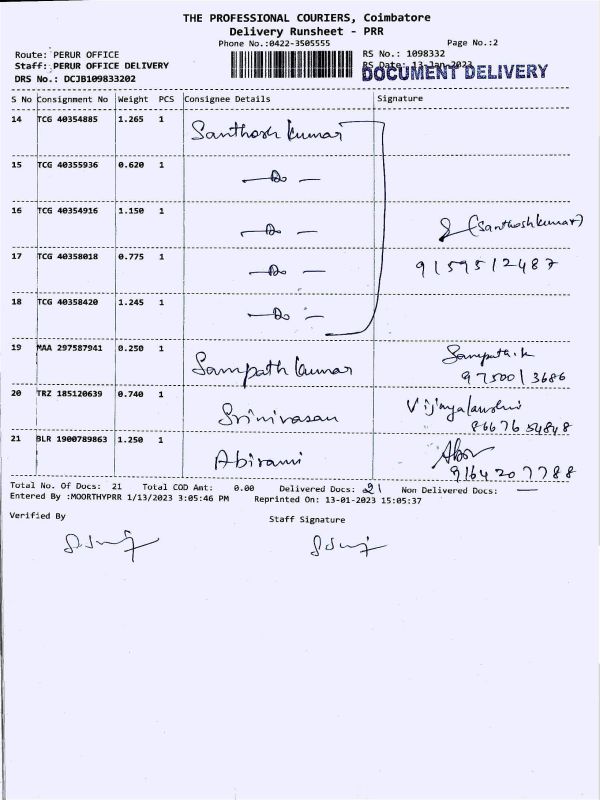 THE PROFESSIONAL COURIERS, Coimbatore
Delivery Runsheet - PRR
Phone No.:0422-3505555 Page No.:2
Route: PERUR OFFICE RS No.: 1098332
Staff: PERUR OFFICE DELIVERY RS Date: 13-Jan-2023
DOCUMENT DELIVERY
DRS No.: DCJB109833202
S No Consignment No Weight PCS Consignee Details Signature
14 TCG 40354885 1.265 1 Santhosh kumar
15 TCG 40355936 0.620 1 — Do —
16 TCG 40354916 1.150 1 — Do — (Santhosh kumar)
17 TCG 40358018 0.775 1 — Do — 9159512487
18 TCG 40358420 1.245 1 — Do —
19 MAA 297587941 0.250 1 Sampath kumar Sampath.k
9750013686
20 TRZ 185120639 0.740 1 Srinivasan
8667654848
21 BLR 1900789863 1.250 1 Abirami
9164207788
Total No. Of Docs: 21 Total COD Amt: 0.00 Delivered Docs: 21 Non Delivered Docs: —
Entered By :MOORTHYPRR 1/13/2023 3:05:46 PM Reprinted On: 13-01-2023 15:05:37
Verified By Staff Signature